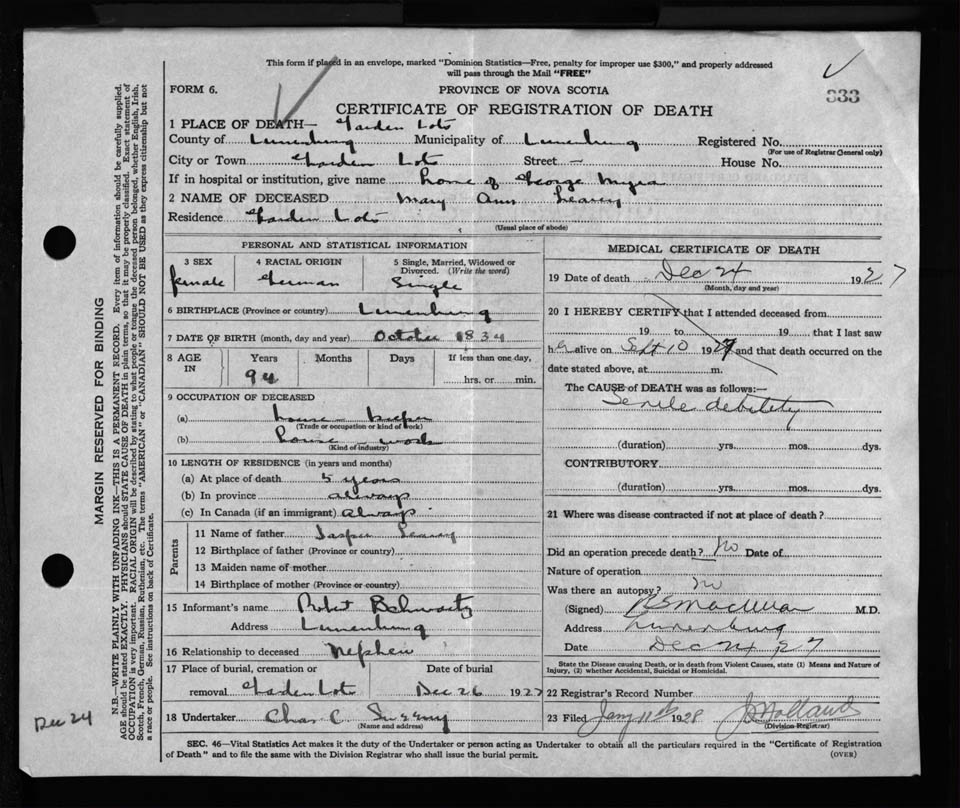 This form if placed in an envelope, marked "Dominion Statistics—Free, penalty for improper use $300," and properly addressed
will pass through the Mail "FREE"
FORM 6.
PROVINCE OF NOVA SCOTIA
333
CERTIFICATE OF REGISTRATION OF DEATH
1 PLACE OF DEATH— Garden Lots
County of Lunenburg Municipality of Lunenburg Registered No.
(For use of Registrar General only)
City or Town Garden Lots Street — House No.
If in hospital or institution, give name home of George Myra
2 NAME OF DECEASED Mary Ann
Residence Garden Lots
(Usual place of abode)
PERSONAL AND STATISTICAL INFORMATION
3 SEX
female
4 RACIAL ORIGIN
German
5 Single, Married, Widowed or
Divorced. (Write the word)
Single
6 BIRTHPLACE (Province or country) Lunenburg
7 DATE OF BIRTH (month, day and year) October 1834
8 AGE IN
Years Months Days If less than one day,
94
hrs. or min.
9 OCCUPATION OF DECEASED
(a) house-keeper
(Trade or occupation or kind of work)
(b) house work
(Kind of industry)
10 LENGTH OF RESIDENCE (in years and months)
(a) At place of death 5 years
(b) In province always
(c) In Canada (if an immigrant) always
Parents
11 Name of father
12 Birthplace of father (Province or country)
13 Maiden name of mother
14 Birthplace of mother (Province or country)
15 Informant's name Robert
Address Lunenburg
16 Relationship to deceased Nephew
17 Place of burial, cremation or Date of burial
removal Garden Lots Dec 26 1927
18 Undertaker Chas C.
(Name and address)
MEDICAL CERTIFICATE OF DEATH
19 Date of death Dec 24 1927
(Month, day and year)
20 I HEREBY CERTIFY that I attended deceased from
19 to 19 that I last saw
her alive on Sept 10 1927 and that death occurred on the
date stated above, at m.
The CAUSE of DEATH was as follows:—
Senile debility
(duration) yrs. mos. dys.
CONTRIBUTORY
(duration) yrs. mos. dys.
21 Where was disease contracted if not at place of death?
Did an operation precede death? No Date of
Nature of operation
Was there an autopsy? no
(Signed) M.D.
Address Lunenburg
Date Dec 24 27
State the Disease causing Death, or in death from Violent Causes, state (1) Means and Nature of
Injury, (2) whether Accidental, Suicidal or Homicidal.
22 Registrar's Record Number
23 Filed Jany 11th 1928
(Division Registrar)
SEC. 46—Vital Statistics Act makes it the duty of the Undertaker or person acting as Undertaker to obtain all the particulars required in the "Certificate of Registration
of Death" and to file the same with the Division Registrar who shall issue the burial permit.
(OVER)
MARGIN RESERVED FOR BINDING
N.B.—WRITE PLAINLY WITH UNFADING INK—THIS IS A PERMANENT RECORD. Every item of information should be carefully supplied.
AGE should be stated EXACTLY. PHYSICIANS should STATE CAUSE OF DEATH in plain terms, so that it may be properly classified. Exact statement of
OCCUPATION is very important. RACIAL ORIGIN will be described by stating to what people or tongue the deceased person belonged, whether English, Irish,
Scotch, French, German, Russian, Ruthenian, etc. The terms "AMERICAN" or "CANADIAN" SHOULD NOT BE USED as they express citizenship but not
a race or people. See instructions on back of Certificate.
Dec 24